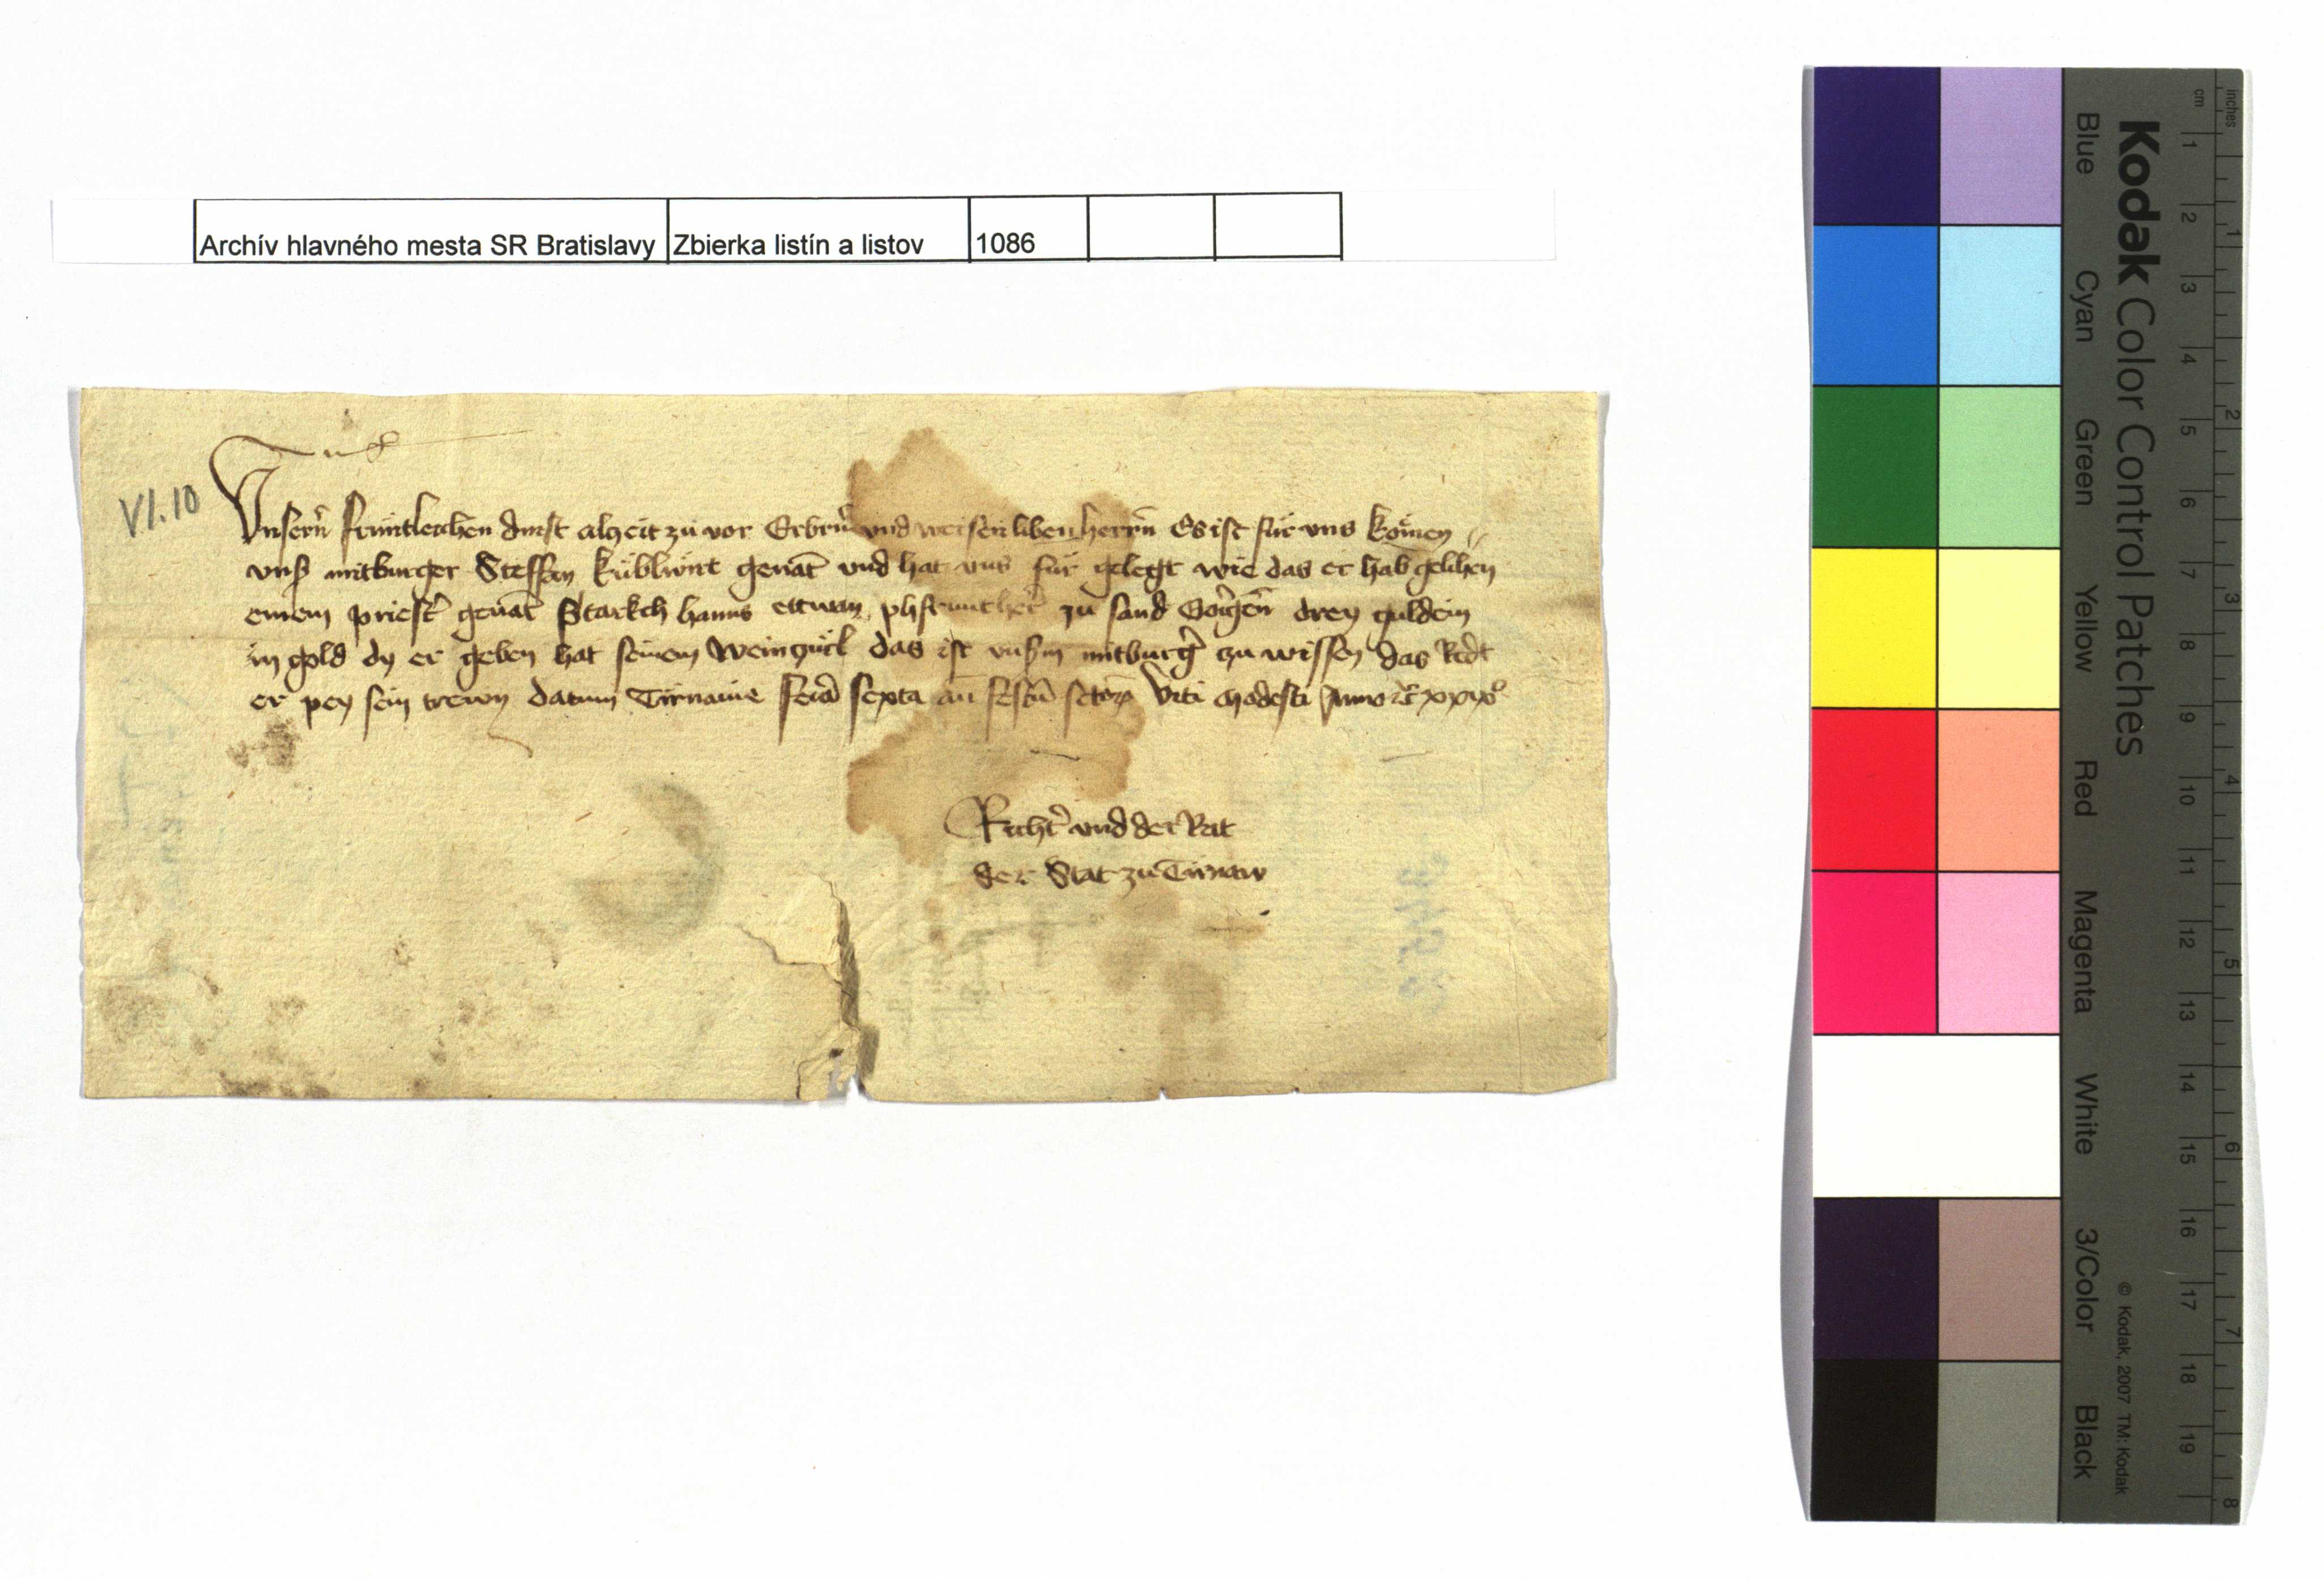 Archív hlavného mesta SR Bratislavy Zbierka listín a listov 1086
VI.10
Vnsern fruntleichen dinst alczeit zu vor Erbrn und weisen liben herrn Es ist für vns komen
vnser mitburger Steffan kübliwnt genāt vnd hat vns für gelegt wie das er hab gelihen
einem priest genāt Starkch hanns ettwan zu sand Gorgen drey guldein
in gold dy er geben hat seinem weinzürl das ist vnserm mitburger zu wissen das Redt
er pey sein trewn datum Tirnauie feria sexta an festū sctor Viti modesti Anno xxix
Richt und der Rat
der Stat zu Tirnaw
Kodak Color Control Patches
Blue Cyan Green Yellow Red Magenta White 3/Color Black
© Kodak, 2007 TM: Kodak
cm 1 2 3 4 5 6 7 8 9 10 11 12 13 14 15 16 17 18 19
inches 1 2 3 4 5 6 7 8